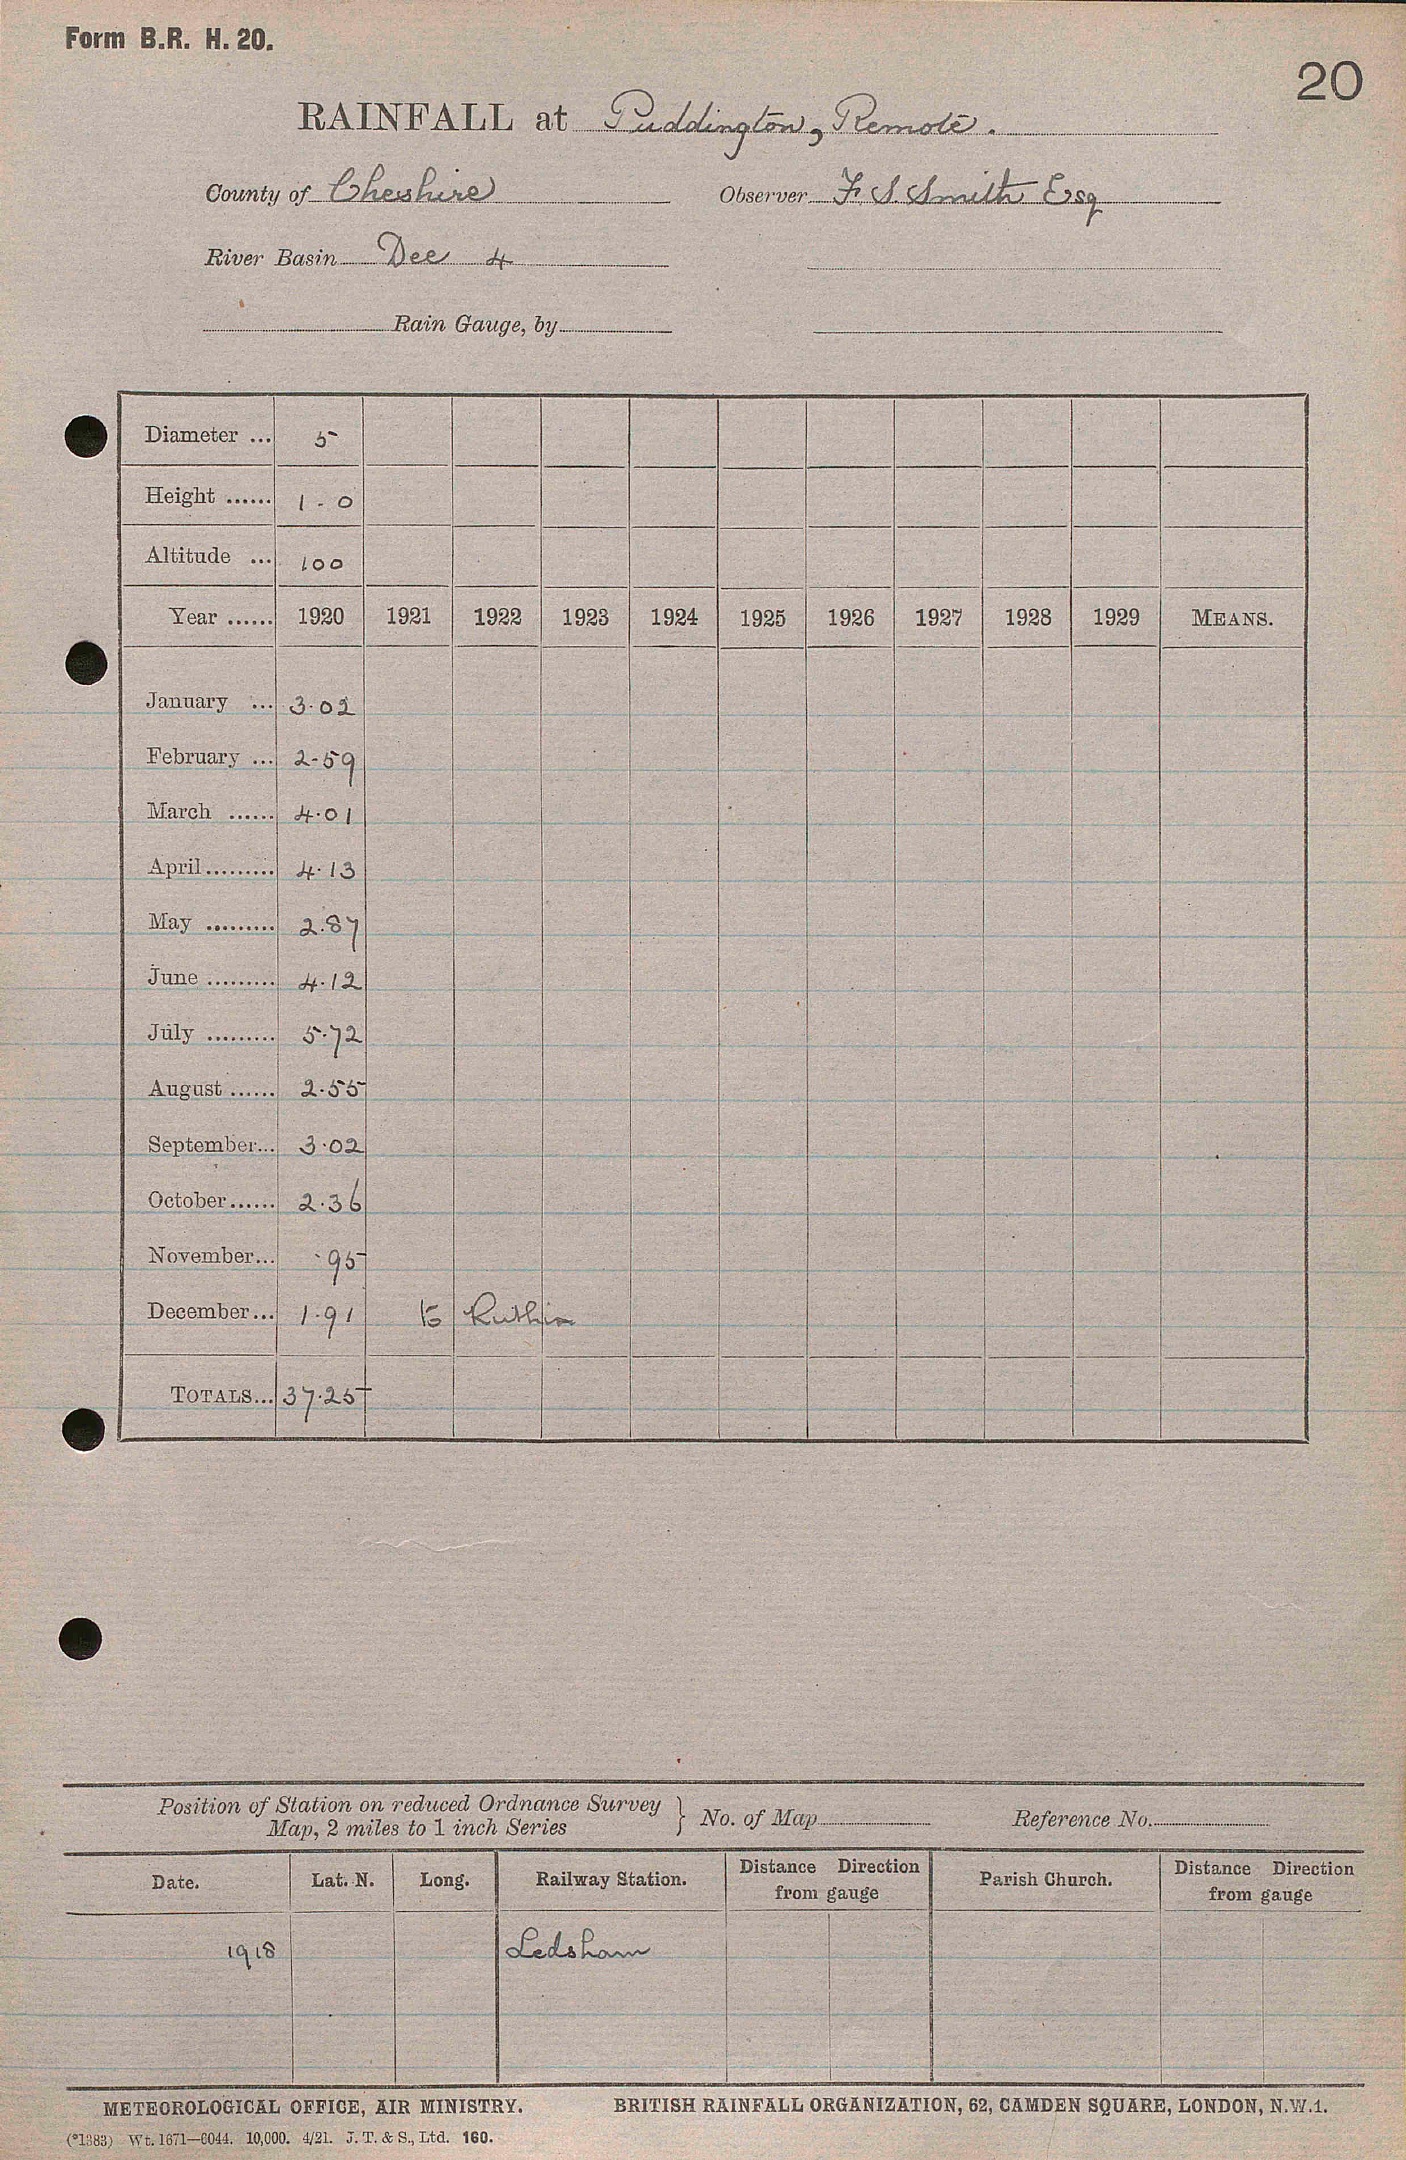 Form B.R. H. 20.
20
RAINFALL at Puddington, Remote.
County of Cheshire Observer F. S. Smith Esq
River Basin Dee 4
Rain Gauge, by
Diameter ... 5
Height ...... 1 - 0
Altitude ... 100
Year ...... 1920 1921 1922 1923 1924 1925 1926 1927 1928 1929 MEANS.
January ... 3.02
February ... 2.59
March ...... 4.01
April......... 4.13
May ......... 2.87
June ......... 4.12
July ......... 5.72
August ...... 2.55
September... 3.02
October...... 2.36
November... .95
December... 1.91 to Ruthin
TOTALS... 37.25
Position of Station on reduced Ordnance Survey
Map, 2 miles to 1 inch Series } No. of Map Reference No.
Date. Lat. N. Long. Railway Station. Distance Direction from gauge Parish Church. Distance Direction from gauge
1918 Ledsham
METEOROLOGICAL OFFICE, AIR MINISTRY. BRITISH RAINFALL ORGANIZATION, 62, CAMDEN SQUARE, LONDON, N.W.1.
(*1383) Wt. 1671—6044. 10,000. 4/21. J. T. & S., Ltd. 160.